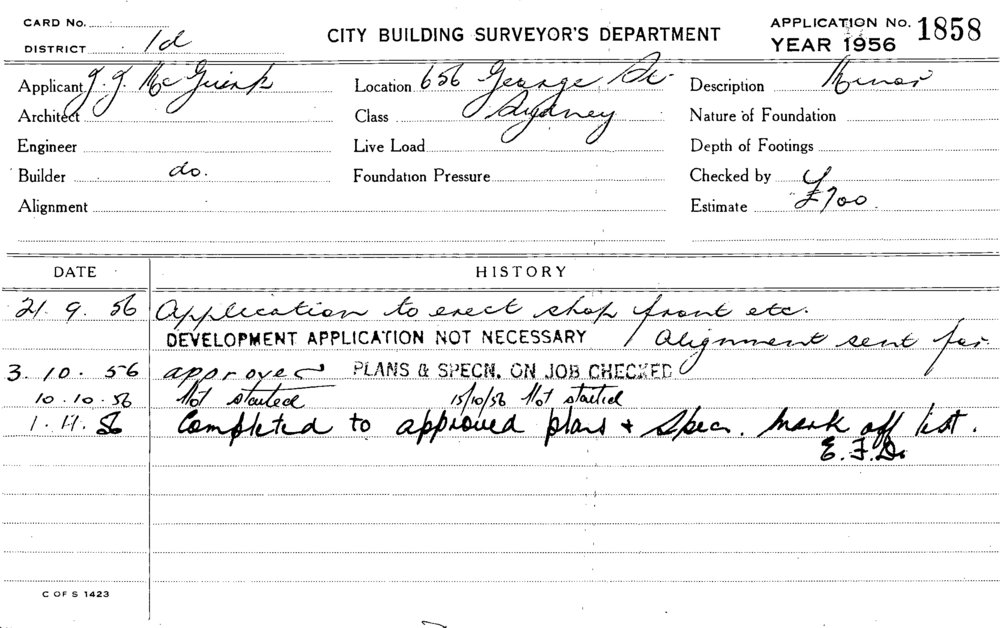 CARD No. CITY BUILDING SURVEYOR'S DEPARTMENT APPLICATION No. 1858
DISTRICT 1d YEAR 1956
Applicant J. J. McGuirk Location 656 George St. Description Minor
Architect Class Sydney Nature of Foundation
Engineer Live Load Depth of Footings
Builder do. Foundation Pressure Checked by
Alignment Estimate £700.
DATE HISTORY
21. 9. 56 Application to erect shop front etc.
DEVELOPMENT APPLICATION NOT NECESSARY / Alignment sent for.
3. 10. 56 approved PLANS & SPECN. ON JOB CHECKED
10.10.56 Not started 15/10/56 Not started
1. 11. 56 Completed to approved plans + Specn. Mark off list.
E. F. D.
C OF S 1423